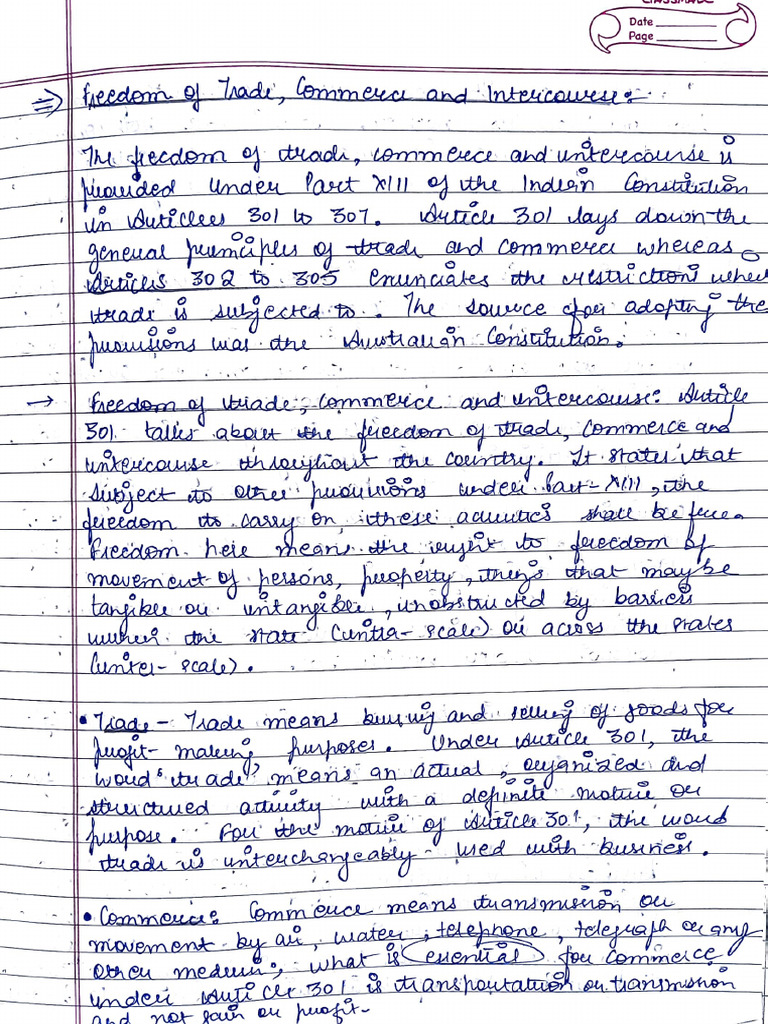 CLASSMATE
Date
Page
⇒ Freedom of Trade, Commerce and Intercourse:
The freedom of trade, commerce and intercourse is
provided under Part XIII of the Indian Constitution
in Articles 301 to 307. Article 301 lays down the
general principles of trade and commerce whereas
Articles 302 to 305 enunciates the restrictions when
trade is subjected to. The source for adopting the
provisions was the Australian Constitution.
→ Freedom of trade, commerce and intercourse: Article
301 talks about the freedom of trade, commerce and
intercourse throughout the country. It states that
subject to other provisions under Part-XIII, the
freedom to carry on these activities shall be free.
Freedom here means the right to freedom of
movement of persons, property, things that may be
tangible or intangible, unobstructed by barriers
within the state (intra-scale) or across the states
(inter-scale).
• Trade - Trade means buying and selling of goods for
profit-making purposes. Under Article 301, the
word 'trade' means an actual, organized and
structured activity with a definite motive or
purpose. For the motive of Article 301, the word
trade is interchangeably used with business.
• Commerce: Commerce means transmission or
movement by air, water, telephone, telegraph or any
other medium; what is essential for commerce
under Article 301 is transportation or transmission
and not gain or profit.